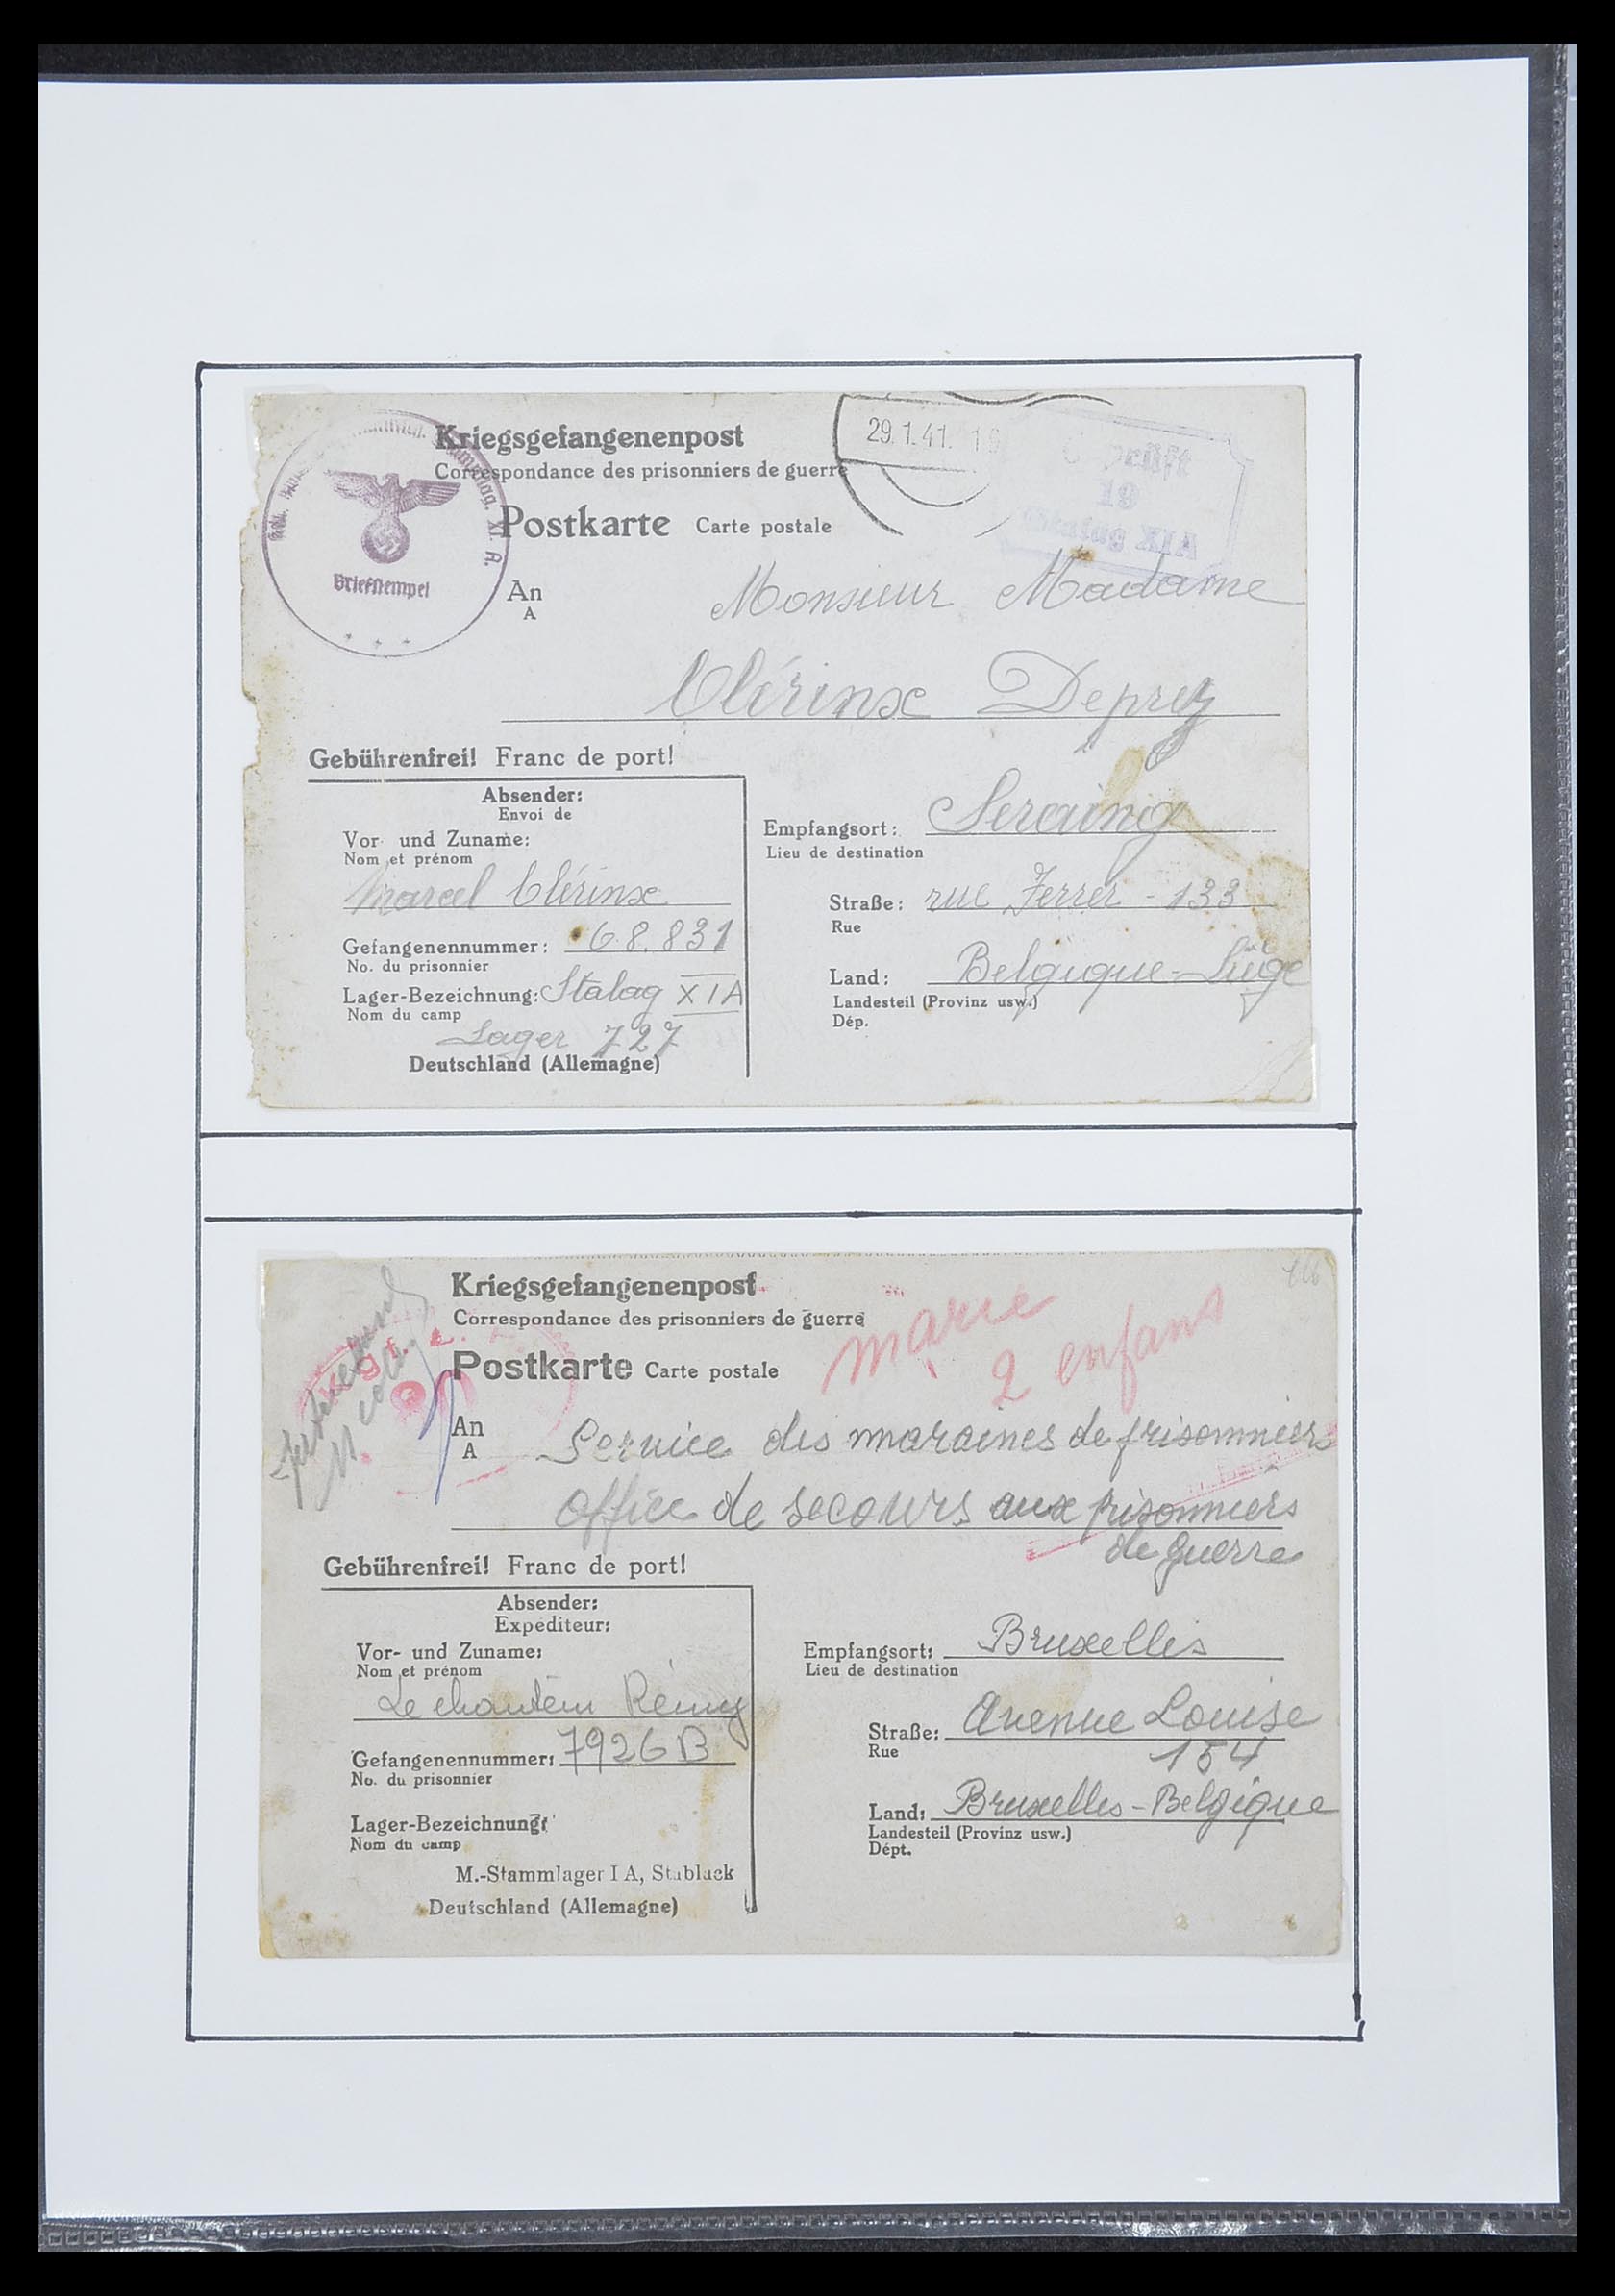 Kriegsgefangenenpost
Correspondance des prisonniers de guerre
29.1.41. 1
Postkarte Carte postale
XI. A.
Briefstempel
An
A
Monsieur Madame
Clérinx Deprez
Gebührenfrei! Franc de port!
Absender:
Envoi de
Vor- und Zuname:
Nom et prénom
Marcel Clérinx
Gefangenennummer: 68.831
No. du prisonnier
Lager-Bezeichnung: Stalag XIA
Nom du camp
Lager 727
Deutschland (Allemagne)
Empfangsort: Seraing
Lieu de destination
Straße: rue Ferrer - 133
Rue
Land: Belgique-Liége
Landesteil (Provinz usw.)
Dép.
Kriegsgefangenenpost
Correspondance des prisonniers de guerre
marie
2 enfans
Postkarte Carte postale
An
A
Service des maraines de prisonniers
Office de secours aux prisonniers
de guerre
Gebührenfrei! Franc de port!
Absender:
Expéditeur:
Vor- und Zuname:
Nom et prénom
Lechantem Rémy
Gefangenennummer: 7926B
No. du prisonnier
Lager-Bezeichnung:
Nom du camp
M.-Stammlager I A, Stablack
Deutschland (Allemagne)
Empfangsort: Bruxelles
Lieu de destination
Straße: Avenue Louise
Rue
154
Land: Bruxelles-Belgique
Landesteil (Provinz usw.)
Dépt.